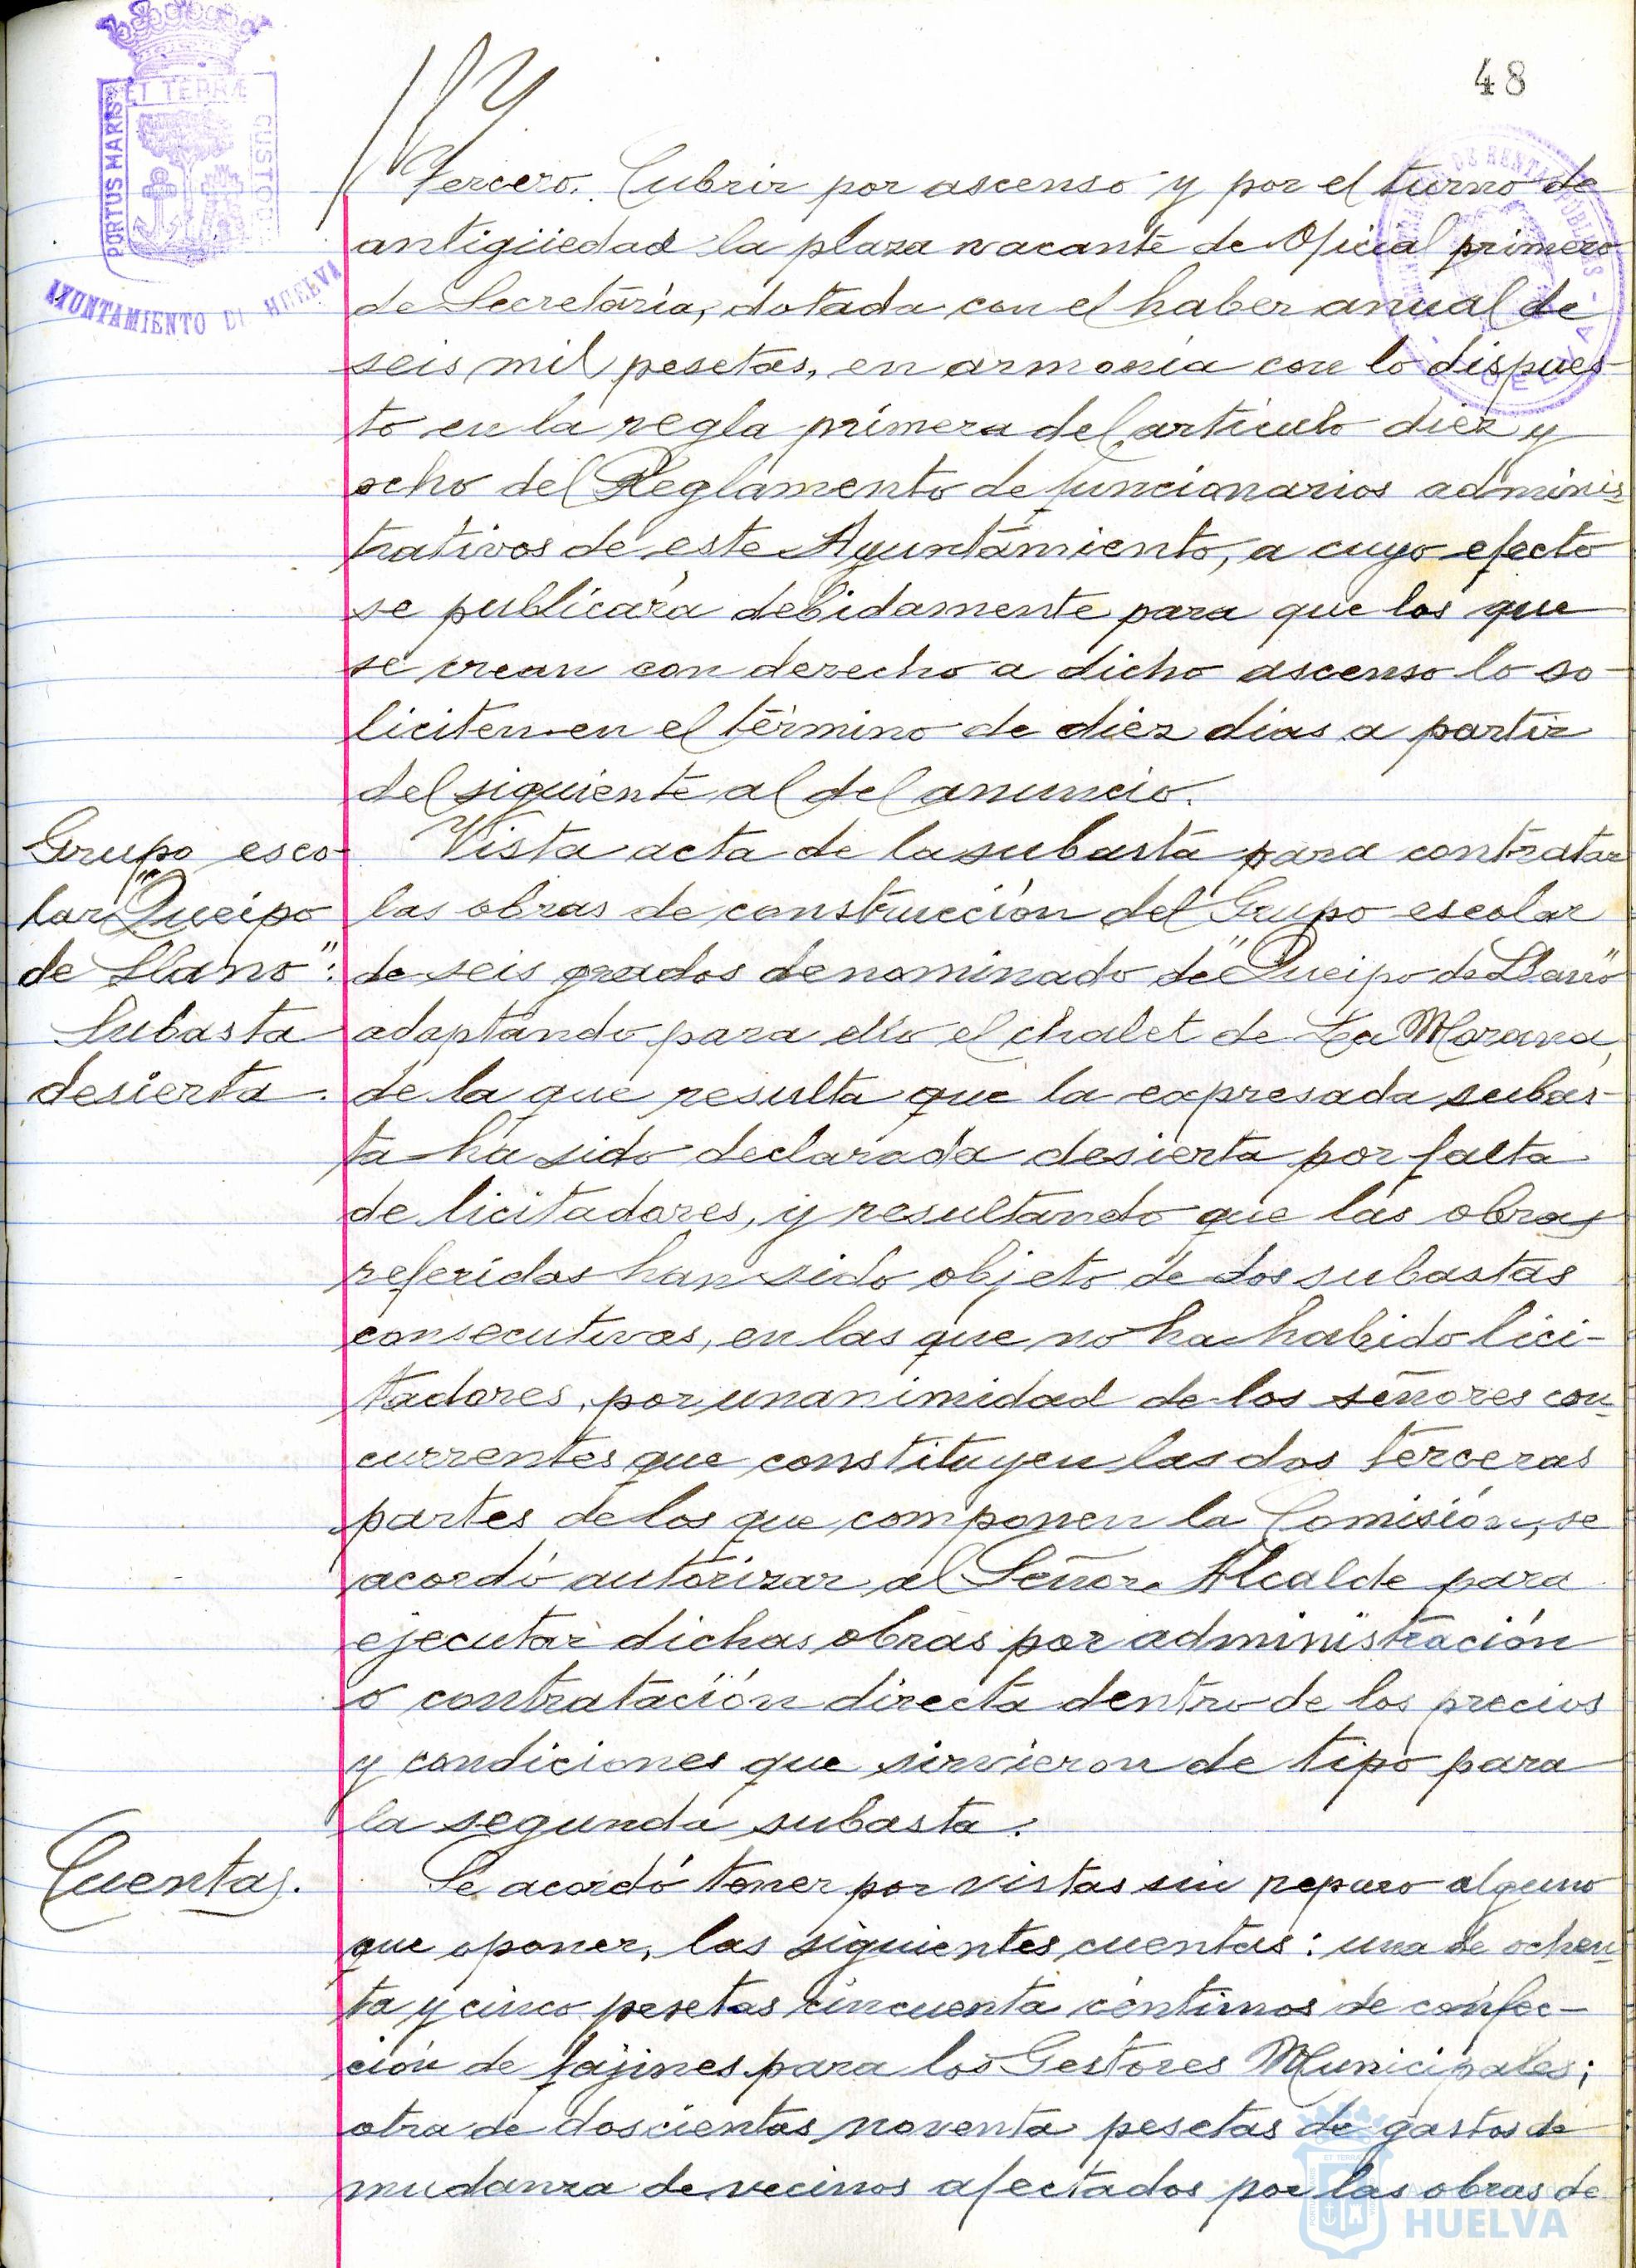 48
ET TERRÆ
PORTUS MARIS
CUSTODIA
AYUNTAMIENTO DE HUELVA
Tercero. Cubrir por ascenso y por el turno de
antigüedad la plaza vacante de Oficial primero
de Secretaría, dotada con el haber anual de
seis mil pesetas, en armonía con lo dispues-
to en la regla primera del artículo diez y
ocho del Reglamento de funcionarios adminis
trativos de este Ayuntamiento, a cuyo efecto
se publicará debidamente para que los que
se crean con derecho a dicho ascenso lo so-
liciten en el término de diez dias a partir
del siguiente al del anuncio.
Grupo esco-
lar "Queipo
de Llano":
Subasta
desierta.
Vista acta de la subasta para contratar
las obras de construcción del Grupo escolar
de seis grados denominado de "Queipo de Llano"
adaptando para ello el chalet de La Morana,
de la que resulta que la expresada subas-
ta ha sido declarada desierta por falta
de licitadores, y resultando que las obras
referidas han sido objeto de dos subastas
consecutivas, en las que no ha habido lici-
tadores, por unanimidad de los señores con
currentes que constituyen las dos terceras
partes de los que componen la Comisión, se
acordó autorizar al Señor Alcalde para
ejecutar dichas obras por administración
o contratación directa dentro de los precios
y condiciones que sirvieron de tipo para
la segunda subasta.
Cuentas.
Se acordó tener por vistas sin reparo alguno
que oponer, las siguientes cuentas: una de ochen
ta y cinco pesetas cincuenta céntimos de confec-
ción de fajines para los Gestores Municipales;
otra de doscientas noventa pesetas de gastos de
mudanza de vecinos afectados por las obras de
HUELVA